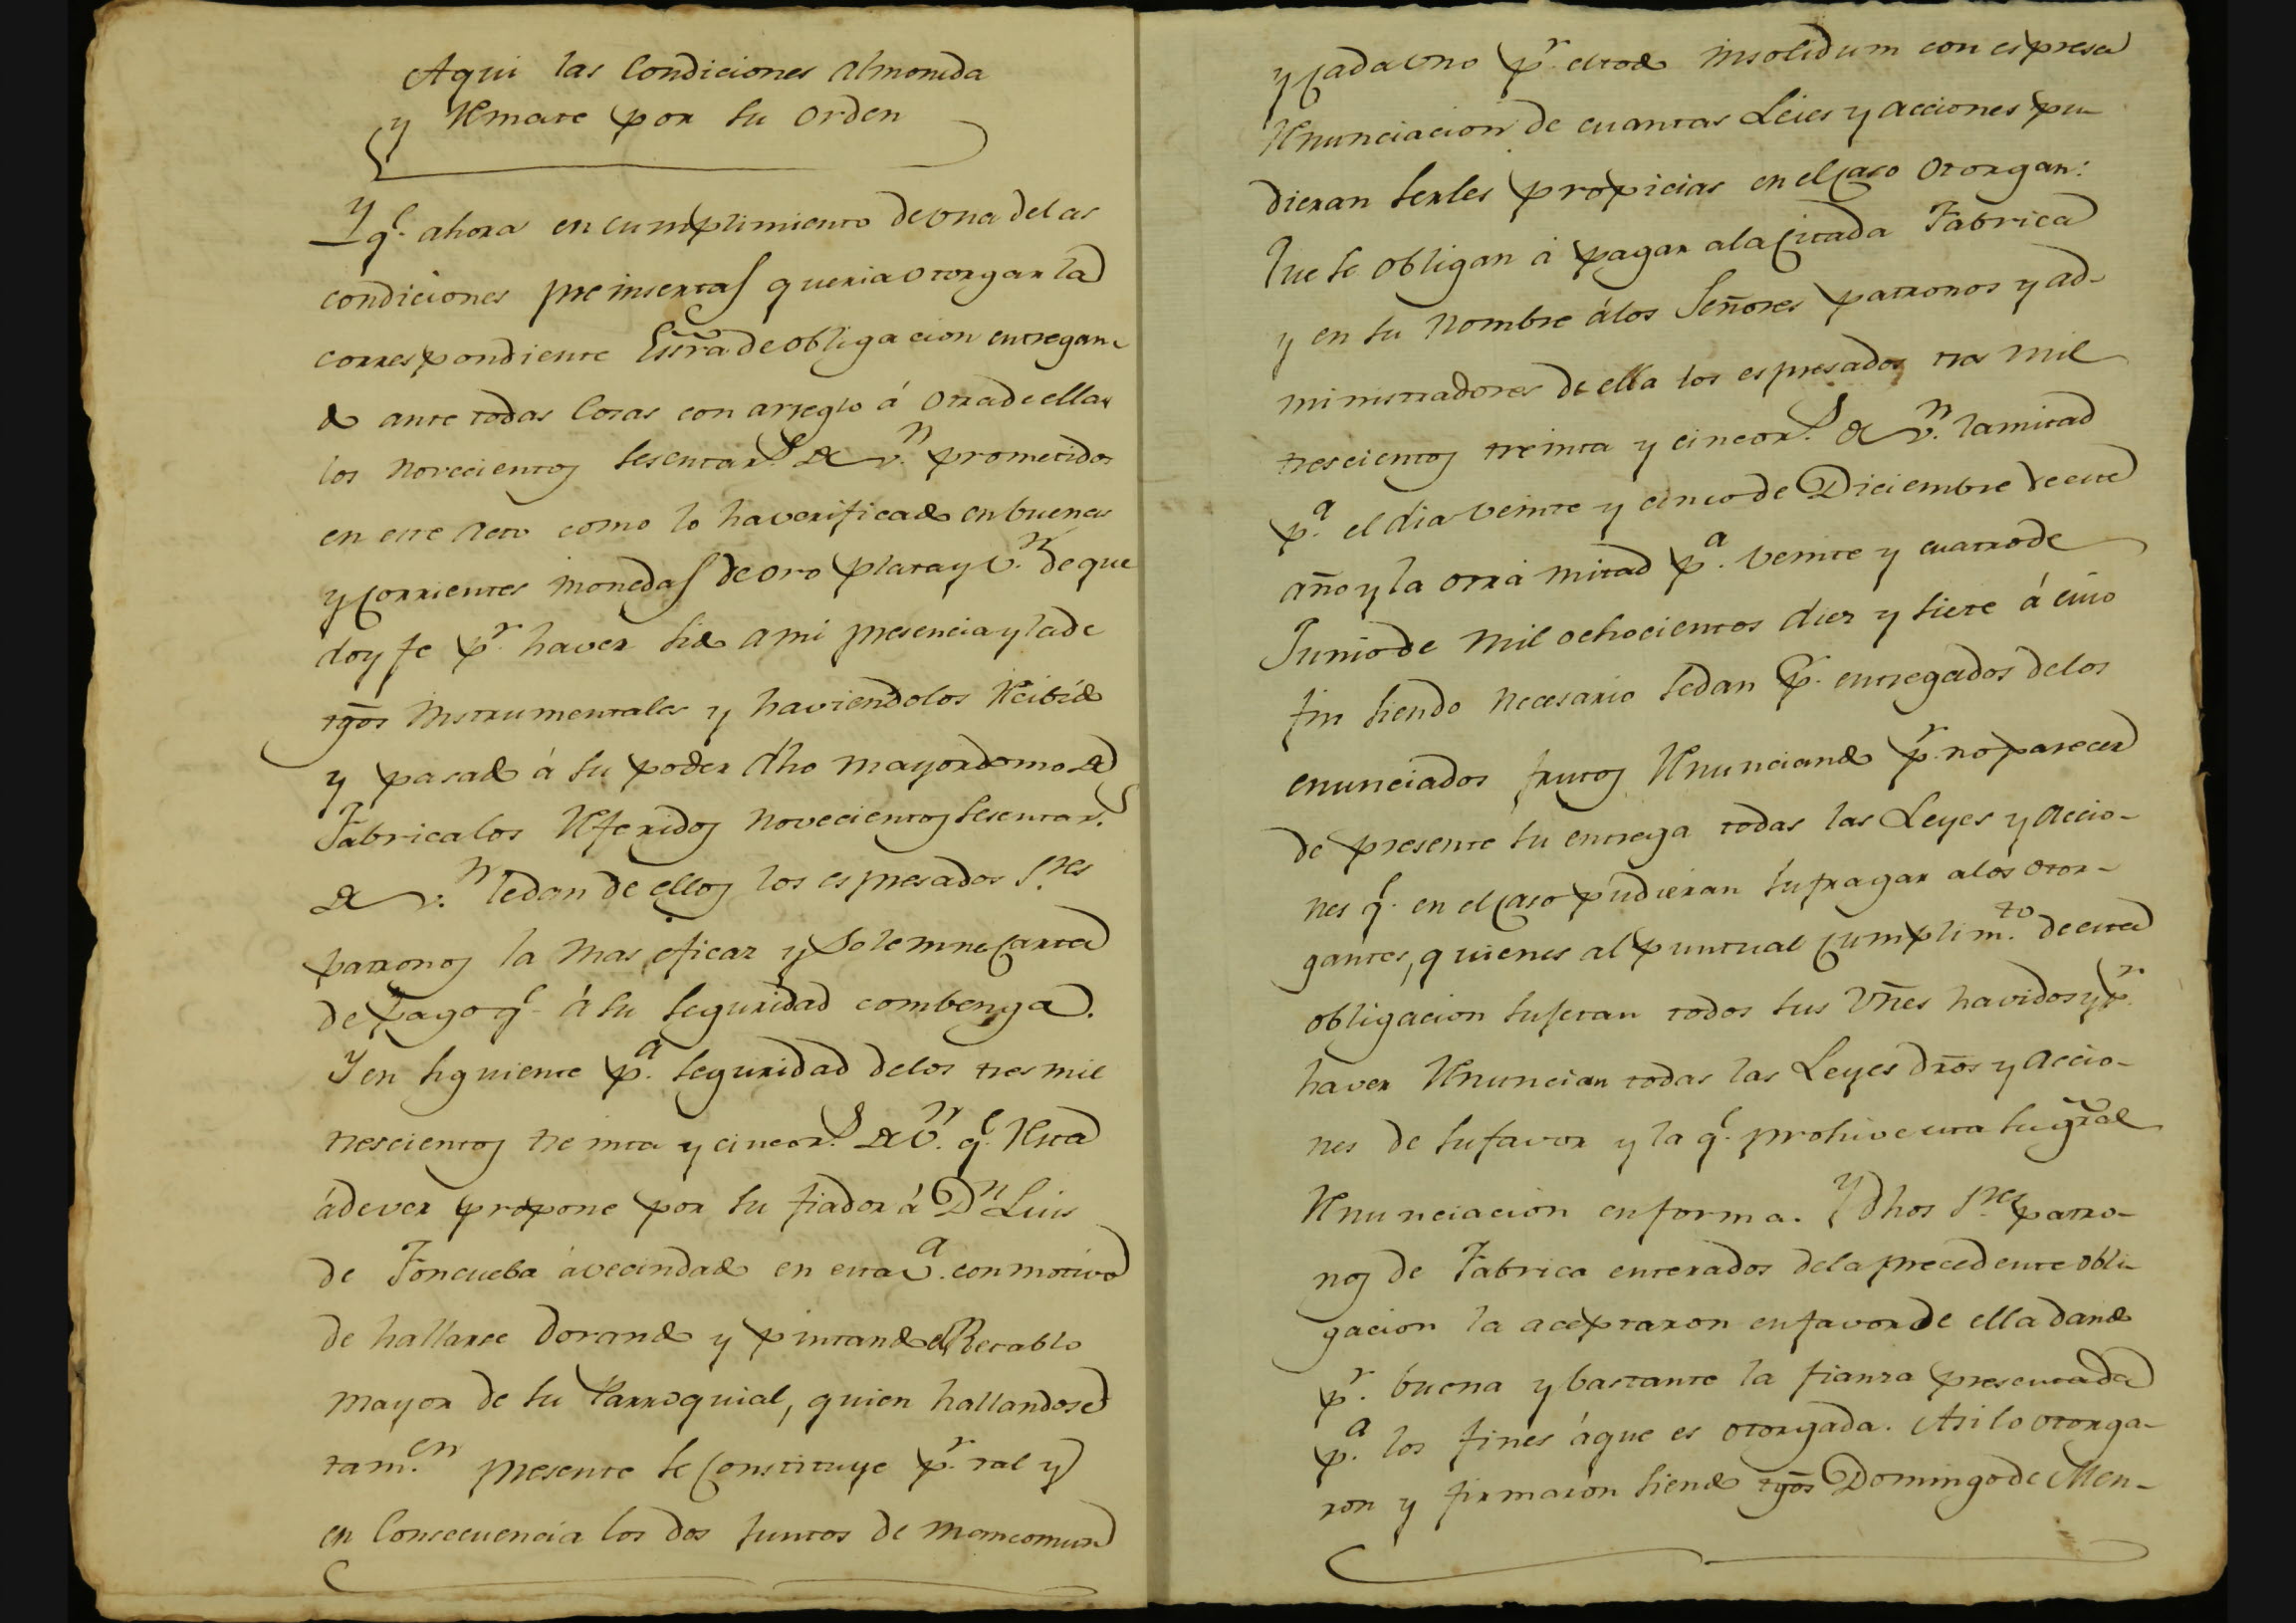 Aqui las Condiciones Almoneda
y Remate por su orden
Y q.e ahora en cumplimiento de una de las
condiciones preinsertas queria otorgar la
correspondiente Escrã de obligacion entregan-
do ante todas Cosas con arreglo á otra de ellas
los novecientos sesenta r.s de v.n prometidos
en este Acto como lo ha verificado en buenas
y corrientes monedas de oro plata y v.n de que
doy fe p.r haver sido a mi presencia y la de
tgõs Instrumentales y haviendolos Recibido
y pasado á su poder dho mayordomo de
Fabrica los Referidos novecientos sesenta r.s
de v.n le dan de ellos los espresados S.res
patronos la mas eficaz y Solemne Carta
de Pago q.e á su seguridad combenga.
Y en siguiente p.a seguridad de los tres mil
trescientos treinta y cinco r.s de v.n q.e Resta
á dever propone por su fiador á D.n Luis
de Foncueba avecindado en esta v.a con motivo
de hallarse dorando y pintando el Retablo
mayor de su Parroquial, quien hallandose
tam.en presente se Constituye p.r tal y
en Consecuencia los dos juntos de mancomun
y Cada uno p.r el todo insolidum con espresa
Renunciacion de cuantas Leies y acciones pu-
dieran serles propicias en el Caso otorgan:
Que se obligan á pagar a la Citada Fabrica
y en su nombre á los Señores patronos y ad-
ministradores de ella los espresados tres mil
trescientos treinta y cinco r.s de v.n la mitad
p.a el dia veinte y cinco de Diciembre de este
año y la otra mitad p.a veinte y cuatro de
Junio de mil ochocientos diez y siete á cuio
fin siendo necesario se dan p.r entregados de los
enunciados frutos Renunciando p.r no parecer
de presente su entrega todas las Leyes y accio-
nes q.e en el Caso pudieran sufragar a los otor-
gantes, quienes al puntual Cumplim.to de esta
obligacion sujetan todos sus Vñes havidos y p.r
haver Renuncian todas las Leyes drõs y accio-
nes de su favor y la q.e prohive esta su gral
Renunciacion en forma. Y dhos S.res patro-
nos de Fabrica enterados de la precedente obli-
gacion la aceptaron en favor de ella dando
p.r buena y bastante la fianza presentada
p.a los fines á que es otorgada. Asi lo otorga-
ron y firmaron siendo tgõs Domingo de Men-